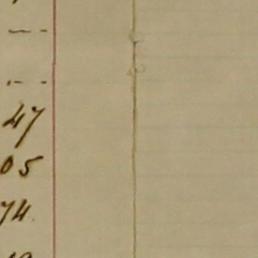 47
05
74